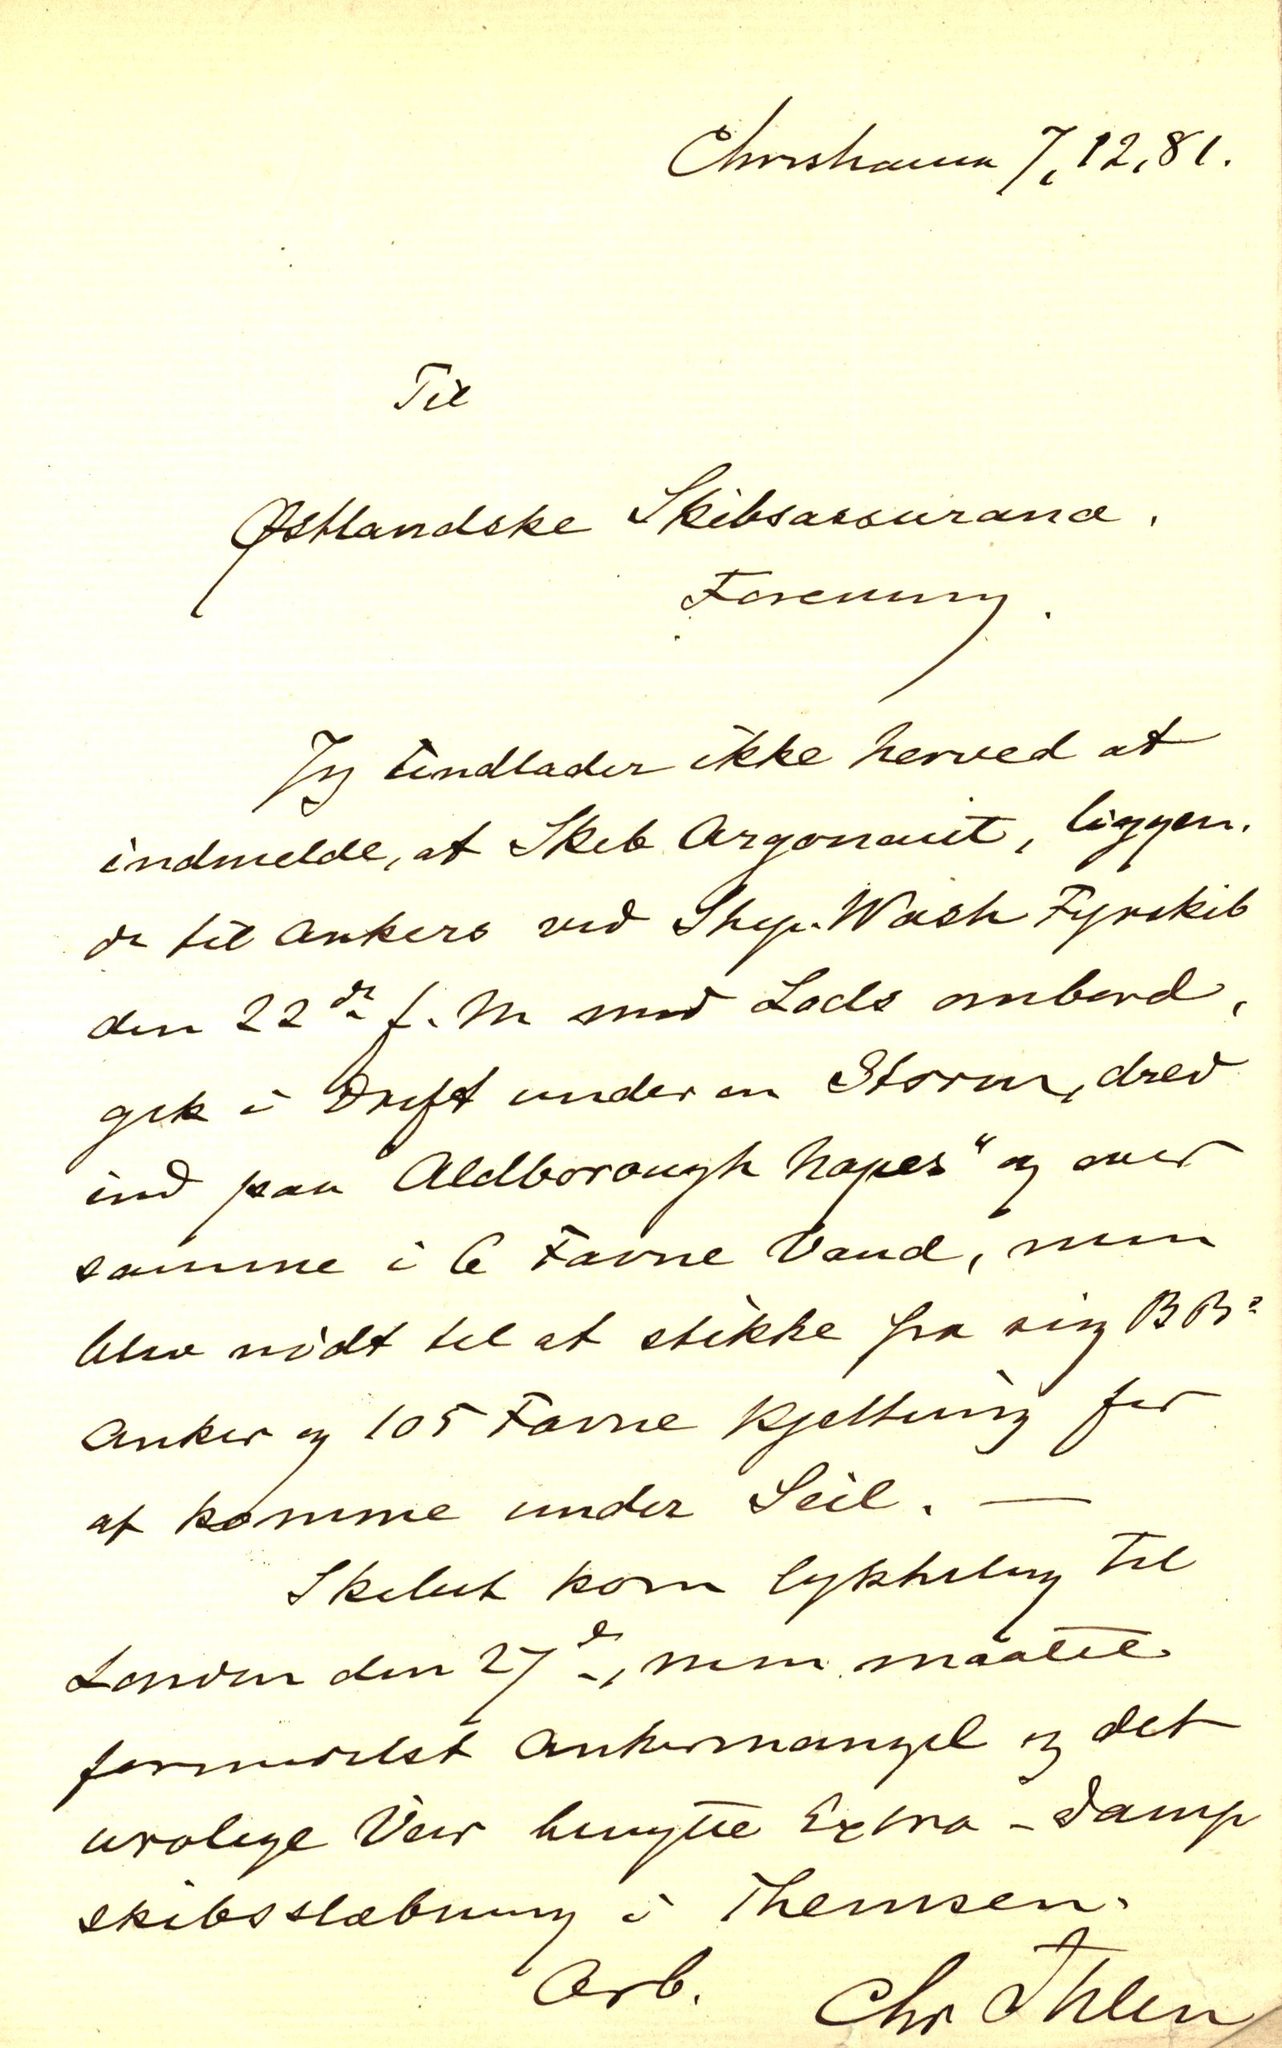 Christiania 7,12,81.
Til
Østlandske Skibsassurance.
Forening.
Jeg undlader ikke herved at
indmelde, at Skib Argonaut, liggen.
de til Ankers ved Ship-Wash Fyrskib
den 22de f. M med Lods ombord,
gik i Drift under en Storm, drev
ind paa "Aldborough Napes" og over
samme i 6 Favne Vand, men
blev nödt til at stikke fra sig BBs
Anker og 105 Favne Kjetting for
at komme under Seil. —
Skibet kom lykkelig til
London den 27de, men maatte
formedelst Ankermangel og det
urolige Veir benytte Extra - Damp
skibsslæbning i Themsen.
Arb. Chr Ihlen